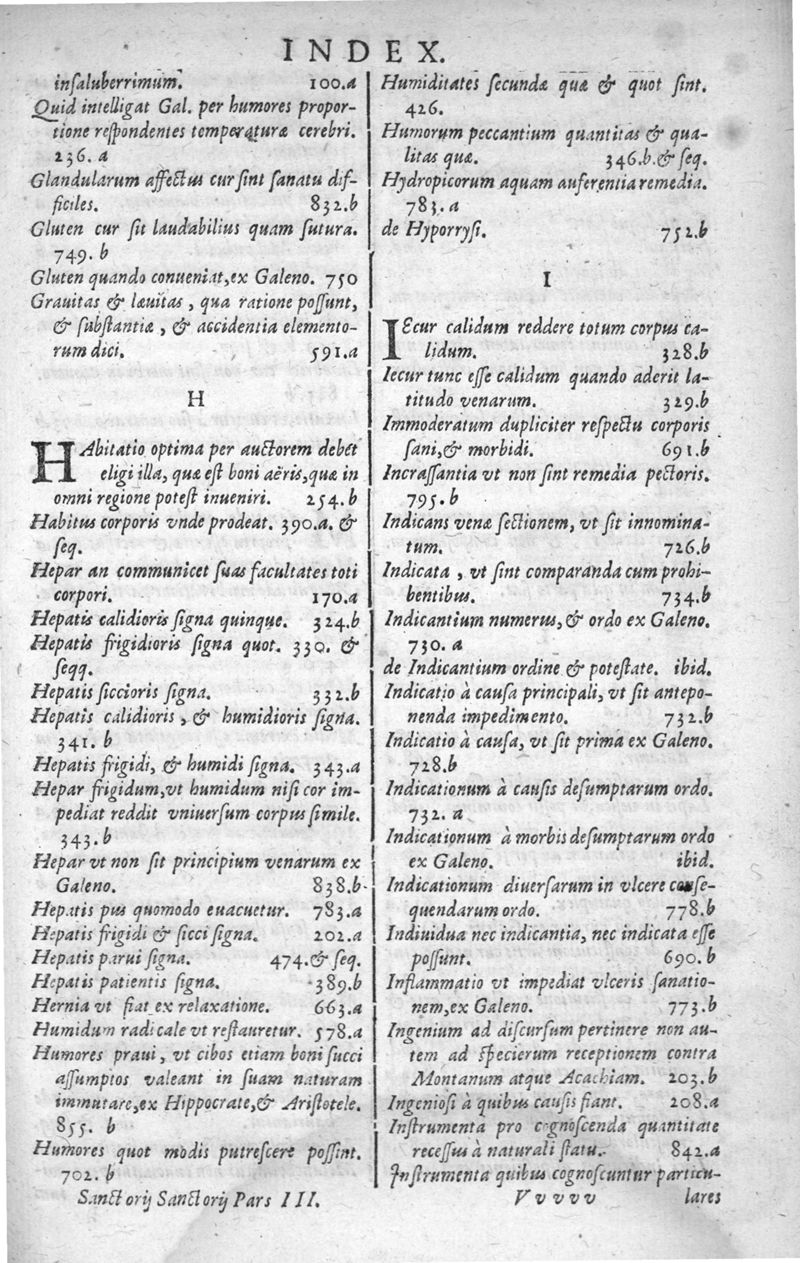 INDEX.
inſaluberrimum. 100.a
Quid intelligat Gal. per humores propor-
tione reſpondentes temperaturæ cerebri.
236. a
Glandularum affectus cur ſint ſanatu dif-
ficiles. 832.b
Gluten cur ſit laudabilius quam ſutura.
749. b
Gluten quando conueniat, ex Galeno. 750
Grauitas & læuitas, qua ratione poſſunt,
& ſubſtantiæ, & accidentia elemento-
rum dici. 591.a
H
HAbitatio optima per auctorem debet
eligi illa, quæ eſt boni aëris, quæ in
omni regione poteſt inueniri. 254.b
Habitus corporis vnde prodeat. 390.a. &
ſeq.
Hepar an communicet ſuas facultates toti
corpori. 170.a
Hepatis calidioris ſigna quinque. 324.b
Hepatis frigidioris ſigna quot. 330. &
ſeqq.
Hepatis ſiccioris ſigna. 332.b
Hepatis calidioris, & humidioris ſigna.
341. b
Hepatis frigidi, & humidi ſigna. 343.a
Hepar frigidum, vt humidum niſi cor im-
pediat reddit vniuerſum corpus ſimile.
343.b
Hepar vt non ſit principium venarum ex
Galeno. 838.b
Hepatis pus quomodo euacuetur. 783.a
Hepatis frigidi & ſicci ſigna. 202.a
Hepatis parui ſigna. 474.& ſeq.
Hepatis patientis ſigna. 389.b
Hernia vt fiat ex relaxatione. 663.a
Humidum radicale vt reſtauretur. 578.a
Humores praui, vt cibos etiam boni ſucci
aſſumptos valeant in ſuam naturam
immutare, ex Hippocrate, & Ariſtotele.
855. b
Humores quot modis putreſcere poſſint.
702. b
Sanctorij Sanctorij Pars III.
Humiditates ſecundæ quæ & quot ſint.
426.
Humorum peccantium quantitas & qua-
litas quæ. 346.b.& ſeq.
Hydropicorum aquam auferentia remedia.
783. a
de Hyporryſi. 752.b
I
IEcur calidum reddere totum corpus ca-
lidum. 328.b
Iecur tunc eſſe calidum quando aderit la-
titudo venarum. 329.b
Immoderatum dupliciter reſpectu corporis
ſani, & morbidi. 691.b
Incraſſantia vt non ſint remedia pectoris.
795. b
Indicans venæ ſectionem, vt ſit innomina-
tum. 726.b
Indicata, vt ſint comparanda cum prohi-
bentibus. 734.b
Indicantium numerus, & ordo ex Galeno.
730. a
de Indicantium ordine & poteſtate. ibid.
Indicatio à cauſa principali, vt ſit antepo-
nenda impedimento. 732.b
Indicatio à cauſa, vt ſit prima ex Galeno.
728.b
Indicationum à cauſis deſumptarum ordo.
732. a
Indicationum à morbis deſumptarum ordo
ex Galeno. ibid.
Indicationum diuerſarum in vlcere conſe-
quendarum ordo. 778.b
Indiuidua nec indicantia, nec indicata eſſe
poſſunt. 690.b
Inflammatio vt impediat vlceris ſanatio-
nem, ex Galeno. 773.b
Ingenium ad diſcurſum pertinere non au-
tem ad ſpecierum receptionem contra
Montanum atque Acachiam. 203.b
Ingenioſi à quibus cauſis fiant. 208.a
Inſtrumenta pro cognoſcenda quantitate
receſſus à naturali ſtatu. 842.a
Inſtrumenta quibus cognoſcuntur particu-
Vvvvv lares